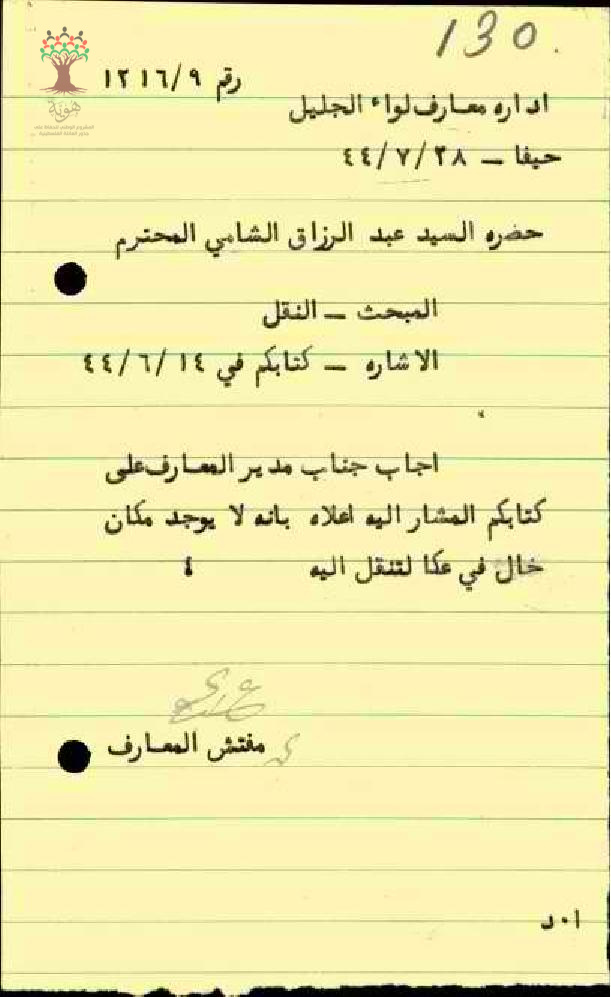 130.
رقم ١٢١٦/٩
اداره معارف لواء الجليل
حيفا - ٤٤/٧/٢٨
حضره السيد عبد الرزاق الشامي المحترم
المبحث - النقل
الاشاره - كتابكم في ٤٤/٦/١٤
اجاب جناب مدير المعارف على
كتابكم المشار اليه اعلاه بانه لا يوجد مكان
خال في عكا لتنقل اليه ٤
مفتش المعارف
ا٠د
هوية